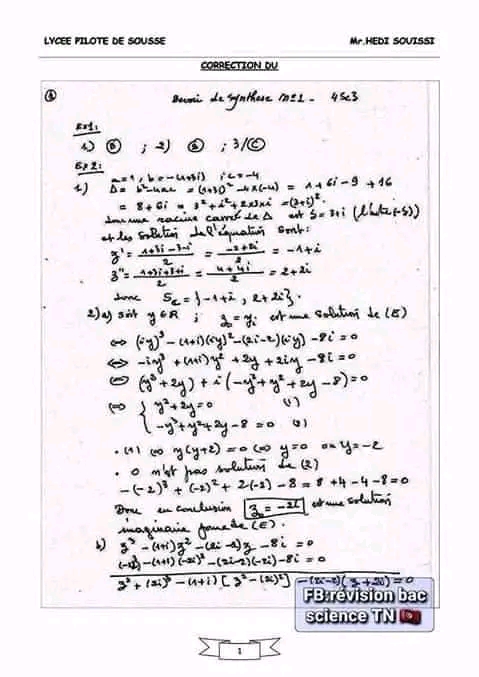 LYCEE PILOTE DE SOUSSE Mr.HEDI SOUISSI
CORRECTION DU
① Devoir de synthèse N°1 - 4Sc3
Ex1:
1) Ⓑ ; 2) Ⓑ ; 3/ Ⓒ
Ex2:
a = 1 ; b = -(1+3i) ; c = -4
1) Δ = b²-4ac = (1+3i)² -4×(-4) = 1+6i-9+16
= 8+6i = 3²+i²+2×3×i = (3+i)²
donc une racine carrée de Δ est δ = 3+i (l'autre -δ)
et les solution de l'équation sont:
z' = (1+3i-3-i)/2 = (-2+2i)/2 = -1+i
z'' = (1+3i+3+i)/2 = (4+4i)/2 = 2+2i
donc S_C = {-1+i , 2+2i}.
2) a) soit y∈R ; z₀ = yi est une solution de (E)
⇔ (iy)³ -(1+i)(iy)² -(2i-2)(iy) -8i = 0
⇔ -iy³ +(1+i)y² + 2y + 2iy - 8i = 0
⇔ (y²+2y) + i(-y³+y²+2y-8) = 0
⇔ { y²+2y = 0 (1)
-y³+y²+2y-8 = 0 (2)
• (1) ⇔ y(y+2) = 0 ⇔ y=0 ou y=-2
• 0 n'est pas solution de (2)
-(-2)³ + (-2)² + 2(-2) - 8 = 8+4-4-8 = 0
Donc en conclusion z₀ = -2i est une solution
imaginaire pure de (E).
b) z³ -(1+i)z² -(2i-2)z -8i = 0
(-2i)³ -(1+i)(-2i)² -(2i-2)(-2i) -8i = 0
z³+(2i)³ -(1+i)[z²-(2i)²] -(2i-2)(z+2i) = 0
FB:révision bac
science TN
1